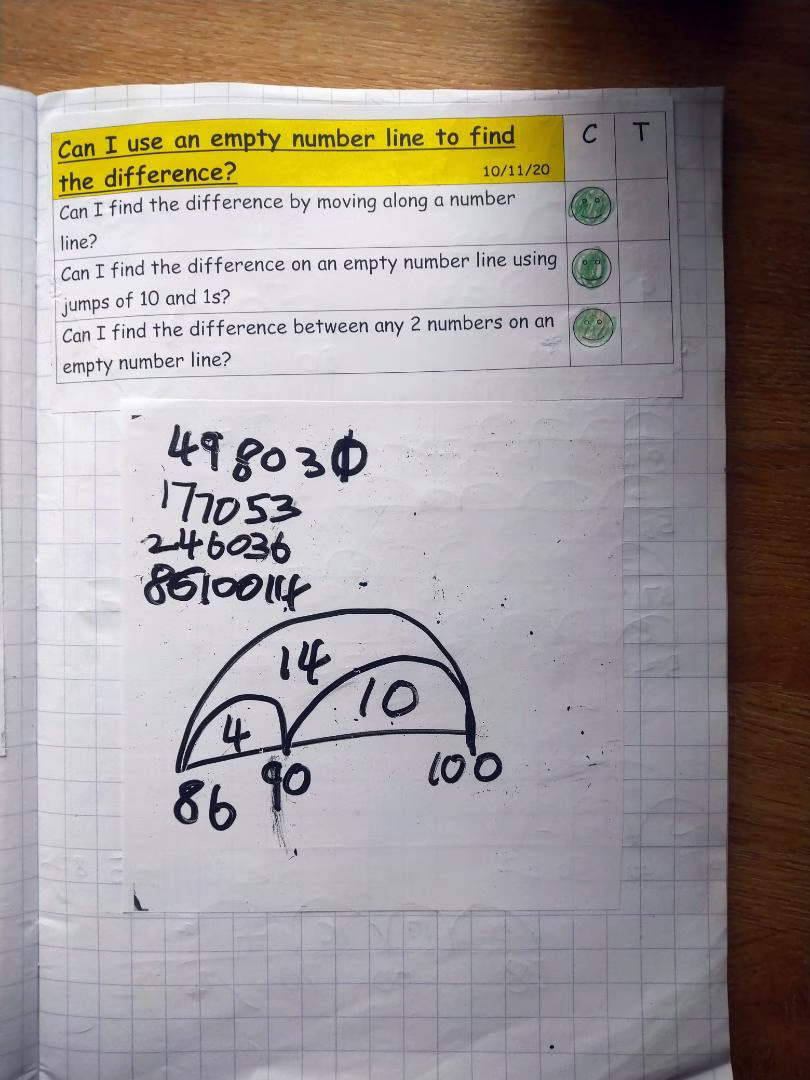 Can I use an empty number line to find
the difference? 10/11/20 C T
Can I find the difference by moving along a number
line?
Can I find the difference on an empty number line using
jumps of 10 and 1s?
Can I find the difference between any 2 numbers on an
empty number line?
498030
177053
246036
8610014
14
4 10
86 90 100